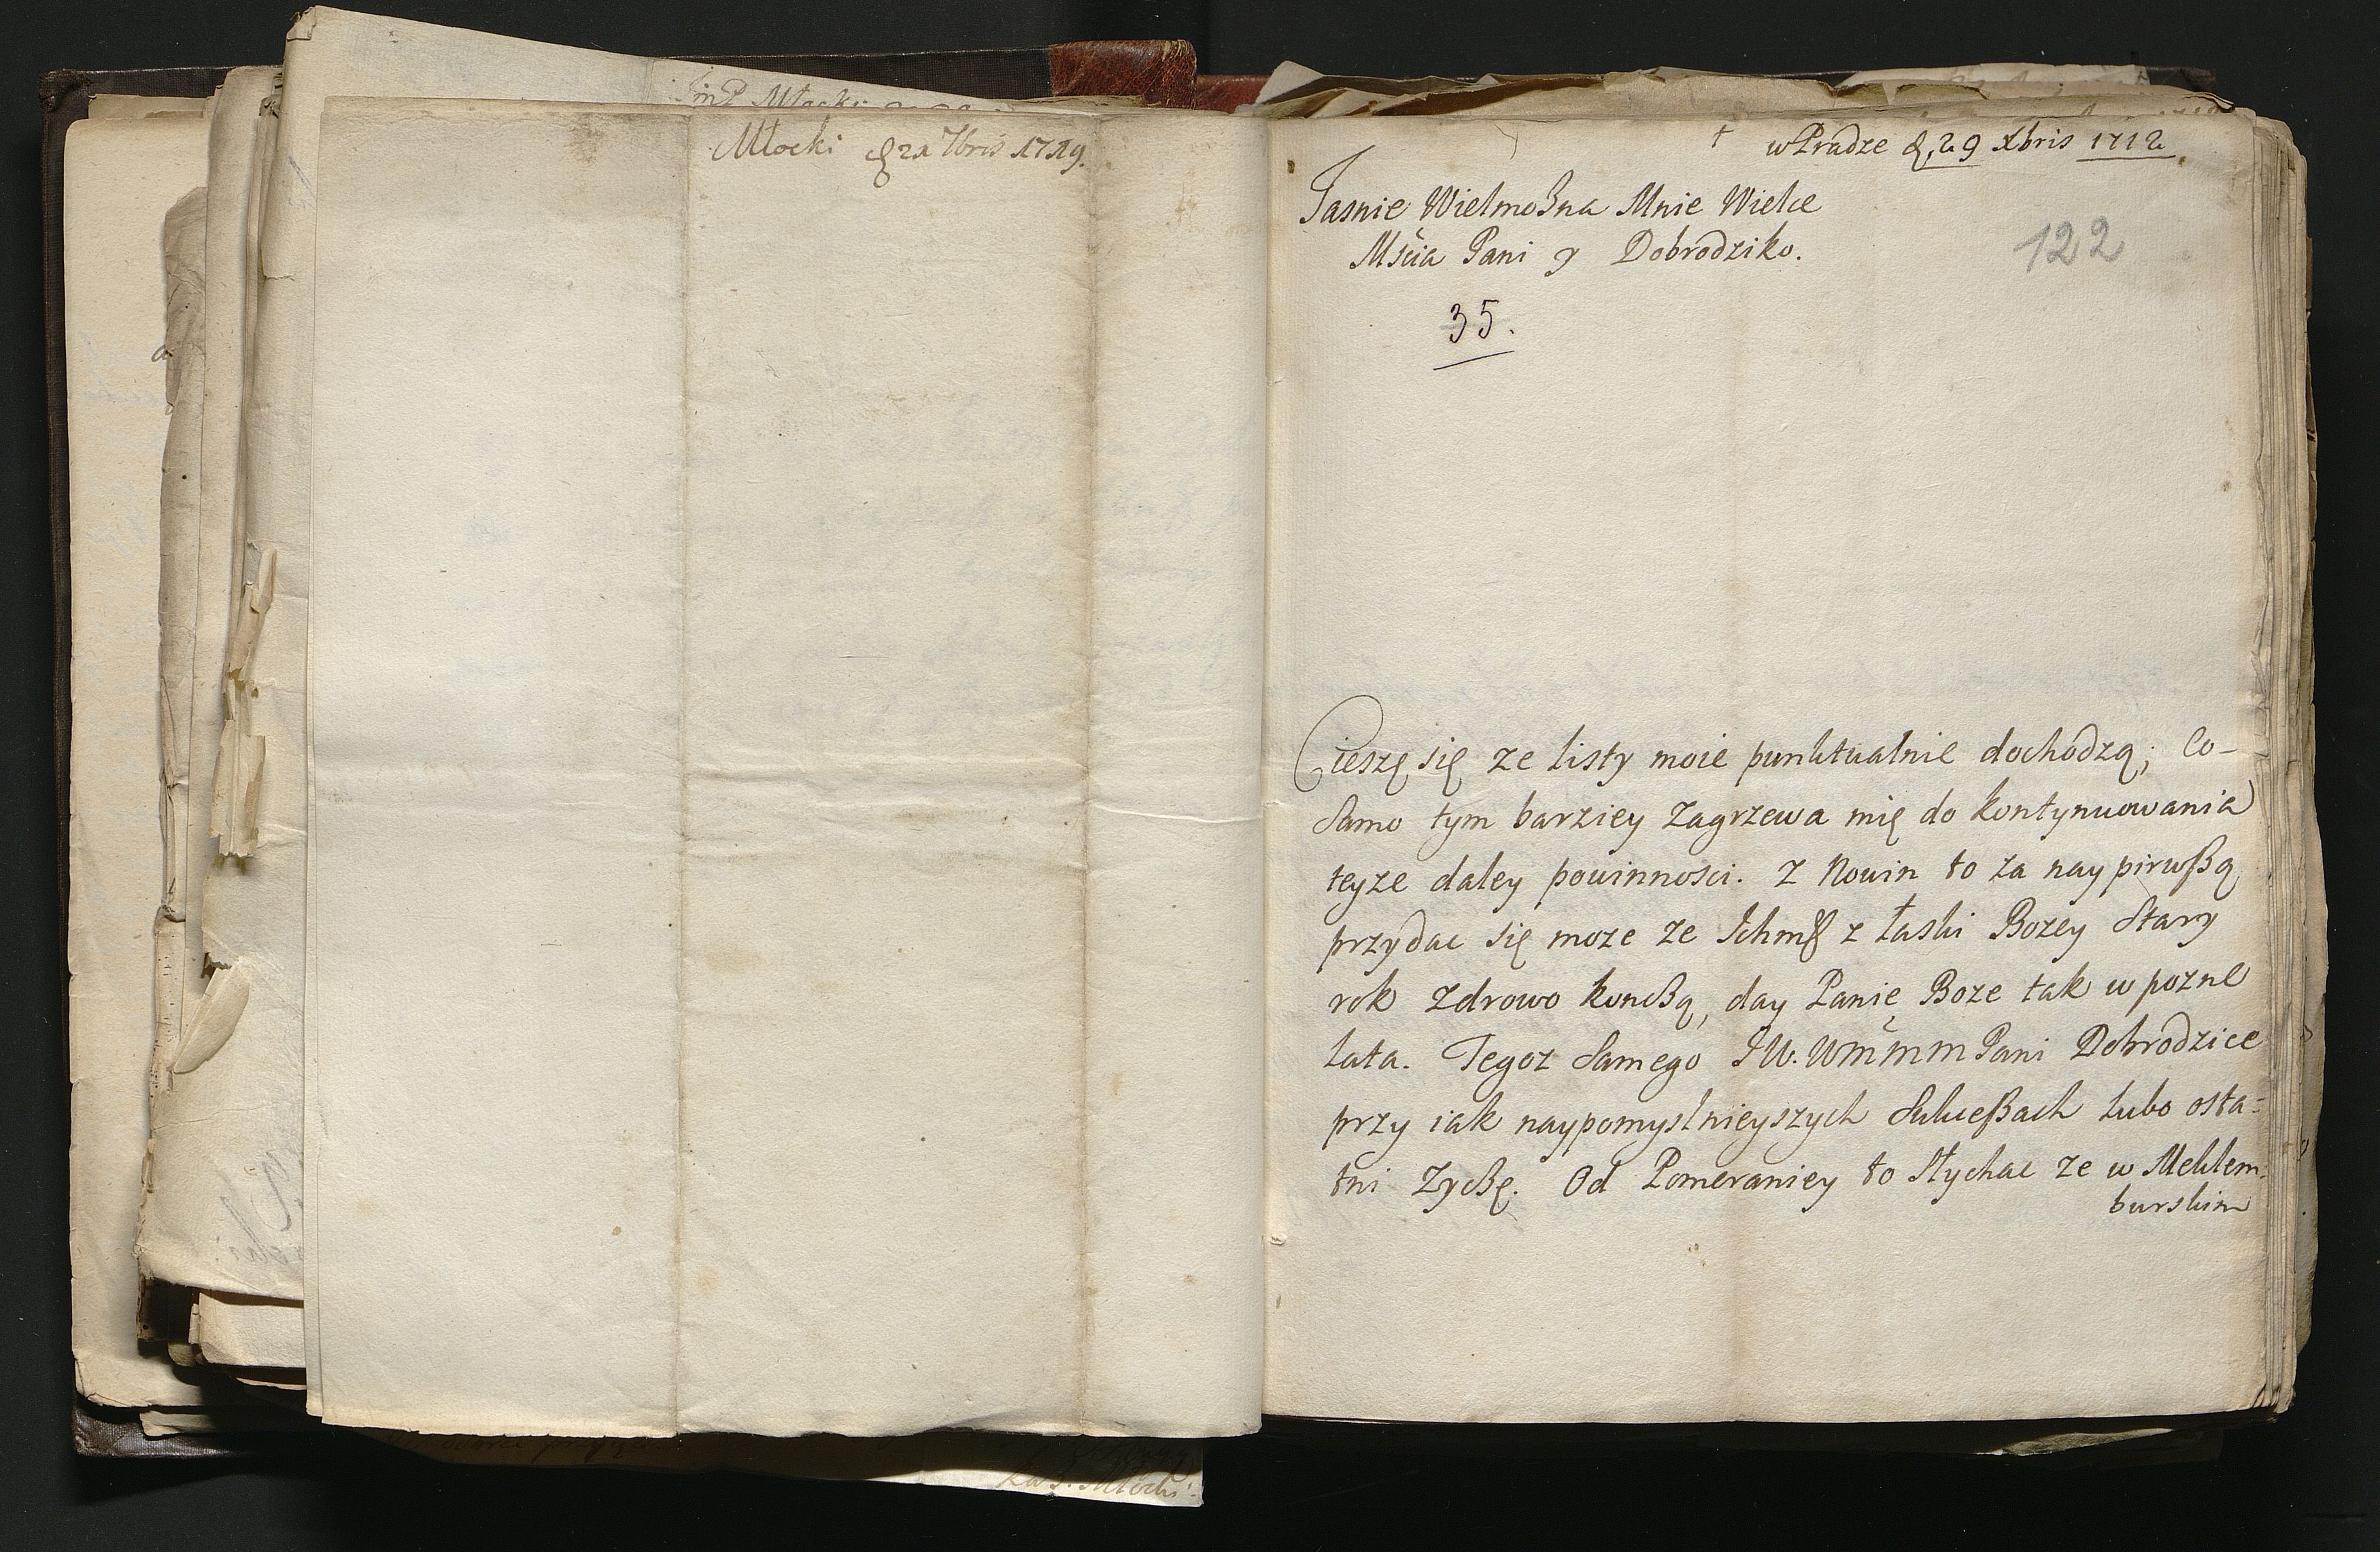 Młocki d 21 7bris 1719.
† w Pradze d, 29 Xbris 1712
Jasnie Wielmoßna Mnie Wielce
Mścia Pani y Dobrodziko.
122
35.
Cieszę się ze listy moie punktualnie dochodzą; Co-
samo tym barziey zagrzewa mię do kontynuowania
teyze daley powinnosci. Z Nowin to za nay pirwßą
przydac się moze ze Ichmć z łaski Bozey stary
rok zdrowo koncßą, day Panie Boze tak w pozne
lata. Tegoz samego JW. WMMM Pani Dobrodzice
przy iak naypomyslnieyszych sukceßach lubo osta=
tni zycßę. Od Pomeraniey to słychac ze w Meklem=
burskim